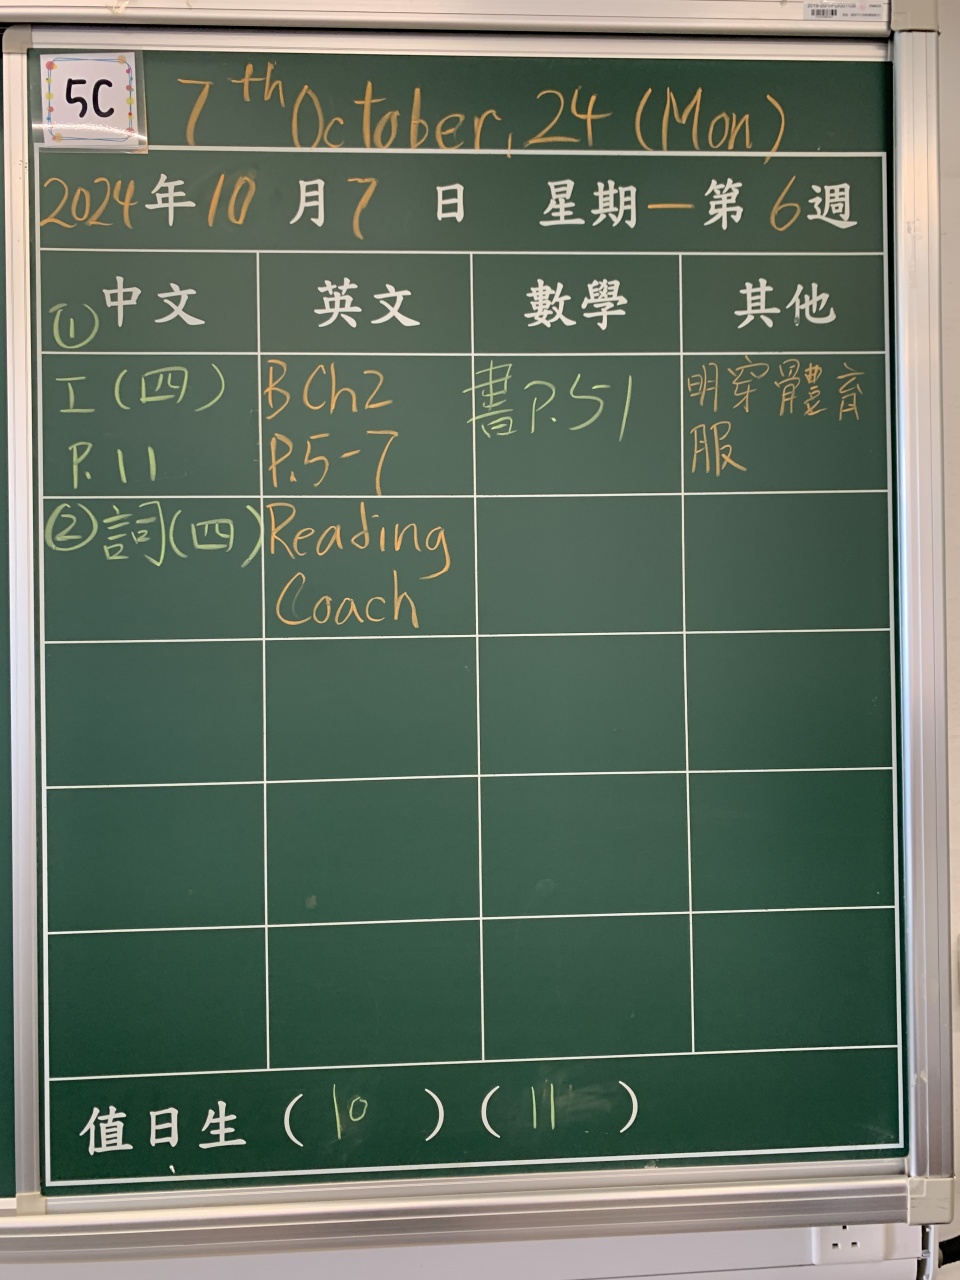 5C
7th October, 24 (Mon)
2024年10月7日 星期一第6週
①中文 英文 數學 其他
工(四) BCh2 書P.51 明穿體育
P.11 P.5-7 服
②詞(四) Reading
Coach
值日生 (10) (11)